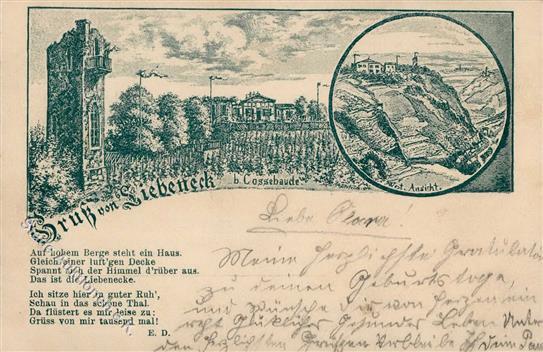 Gruß von Liebeneck
b. Cossebaude
Tot. Ansicht.
Auf hohem Berge steht ein Haus.
Gleich einer luft'gen Decke
Spannt sich der Himmel d'rüber aus.
Das ist die Liebenecke.
Ich sitze hier in guter Ruh',
Schau in das schöne Thal.
Da flüstert es mir leise zu:
Grüss von mir tausend mal!
E. D.
Liebe Clara!
Meine herzlichste Gratulation
zu deinem Geburtstage,
und wünsche dir von Herzen ein
recht glückliches gesundes Leben. Unter
den herzlichsten Grüssen Verbleibe